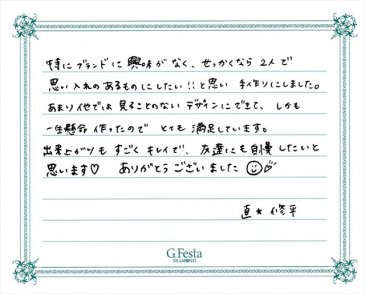 特にブランドに興味がなく、せっかくなら2人で
思い入れのあるものにしたい!!と思い手作りにしました。
あまり他では見ることのないデザインにできて、しかも
一生懸命作ったのでとても満足しています。
出来上がりもすごくキレイで、友達にも自慢したいと
思います♡ ありがとうございました☺
直★修平
G.Festa
DIAMOND